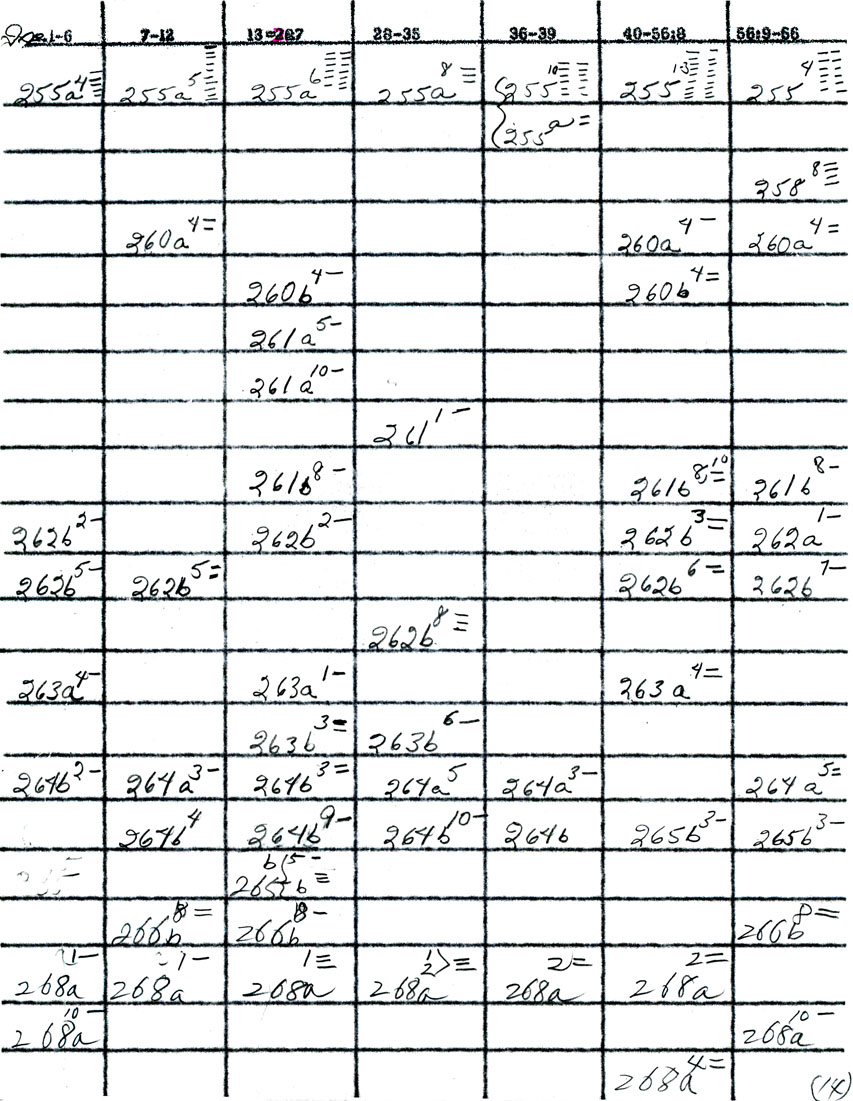 1-6 7-12 13-27 28-35 36-39 40-56:8 56:9-66
255a⁴ 255a⁵ 255a⁶ 255a⁸ 255¹⁰ 255¹³ 255⁴
255a =
258⁸≡
260a⁴= 260a⁴- 260a⁴=
260b⁴- 260b⁴=
261a⁵-
261a¹⁰-
261¹-
261b⁸- 261b⁸,¹⁰= 261b⁸-
262b²- 262b²- 262b³= 262a¹-
262b⁵- 262b⁵= 262b⁶= 262b⁷-
262b⁸≡
263a⁴- 263a¹- 263a⁴=
263b³= 263b⁶-
264b²- 264a³- 264b³= 264a⁵ 264a³- 264a⁵=
264b⁴ 264b⁹- 264b¹⁰- 264b 265b³- 265b³-
b 5-
265b ≡
266b⁸= 266b⁸- 266b⁸=
268a¹- 268a¹- 268a¹≡ 268a ½>≡ 268a²= 268a²=
268a¹⁰- 268a¹⁰-
268a⁴= (14)